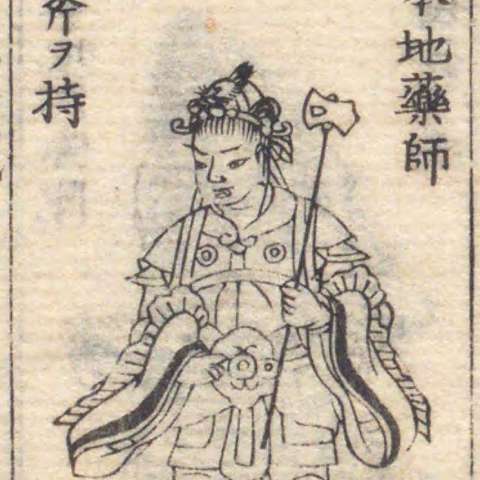 本地藥師
斧ヲ持